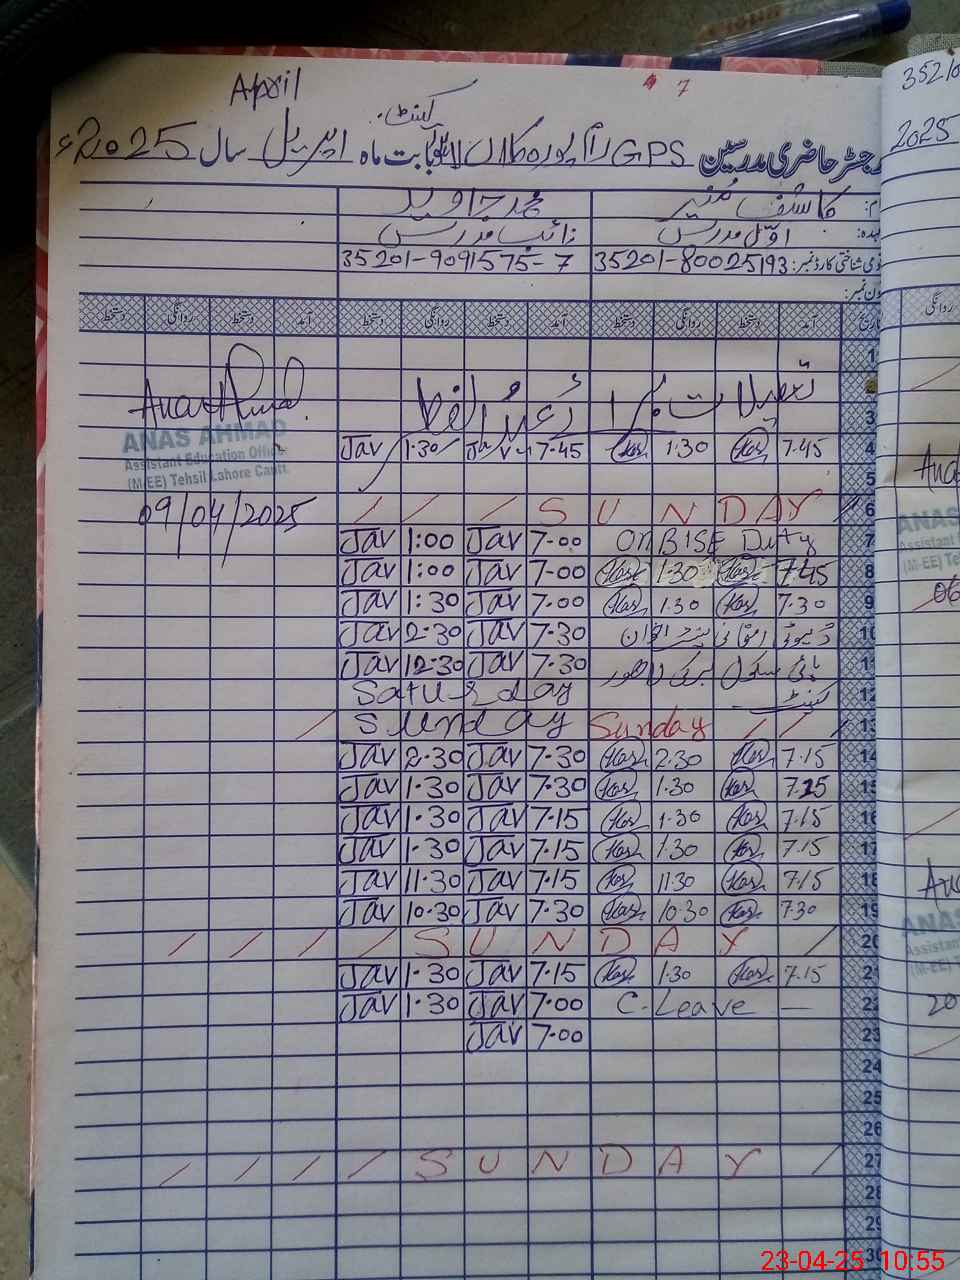 April
7
رجسٹر حاضری مدرسین GPS راجپورہ کلاں لاہور کینٹ بابت ماہ اپریل سال 2025ء
کاشف منیر محمد جاوید
اول مدرس نائب مدرس
قومی شناختی کارڈ نمبر: 35201-80025193 35201-9091575-7
فون نمبر:
تاریخ آمد دستخط روانگی دستخط آمد دستخط روانگی دستخط آمد دستخط روانگی دستخط
1
2 تعطیلات عید الفطر
3
4 7.45 1.30 7.45 Jav 1.30 Jav
5
6 SUNDAY
7 On BISE Duty 7-00 Jav 1:00 Jav
8 7.45 1.30 7-00 Jav 1:00 Jav
9 7.30 1.30 7.00 Jav 1:30 Jav
10 ڈیوٹی امتحانی 7.30 Jav 2.30 Jav
11 ہائی سکول برکی لاہور 7.30 Jav 12.30 Jav
12 کینٹ Saturday
13 Sunday Sunday
14 7.15 2.30 7.30 Jav 2.30 Jav
15 7.15 1.30 7.30 Jav 1.30 Jav
16 7.15 1.30 7.15 Jav 1.30 Jav
17 7.15 1.30 7.15 Jav 1.30 Jav
18 7.15 11.30 7.15 Jav 11.30 Jav
19 7.30 10.30 7.30 Jav 10.30 Jav
20 SUNDAY
21 7.15 1.30 7.15 Jav 1.30 Jav
22 C.Leave — 7.00 Jav 1.30 Jav
23 7.00 Jav
24
25
26
27 SUNDAY
28
29
30
ANAS AHMAD
Assistant Education Officer
(M-EE) Tehsil Lahore Cantt.
09/04/2025
3520
2025
روانگی
Ana
ANAS
Assistant
(M-EE) Te
06
ANAS
Assistan
(M-EE) T
20
23-04-25 10:55